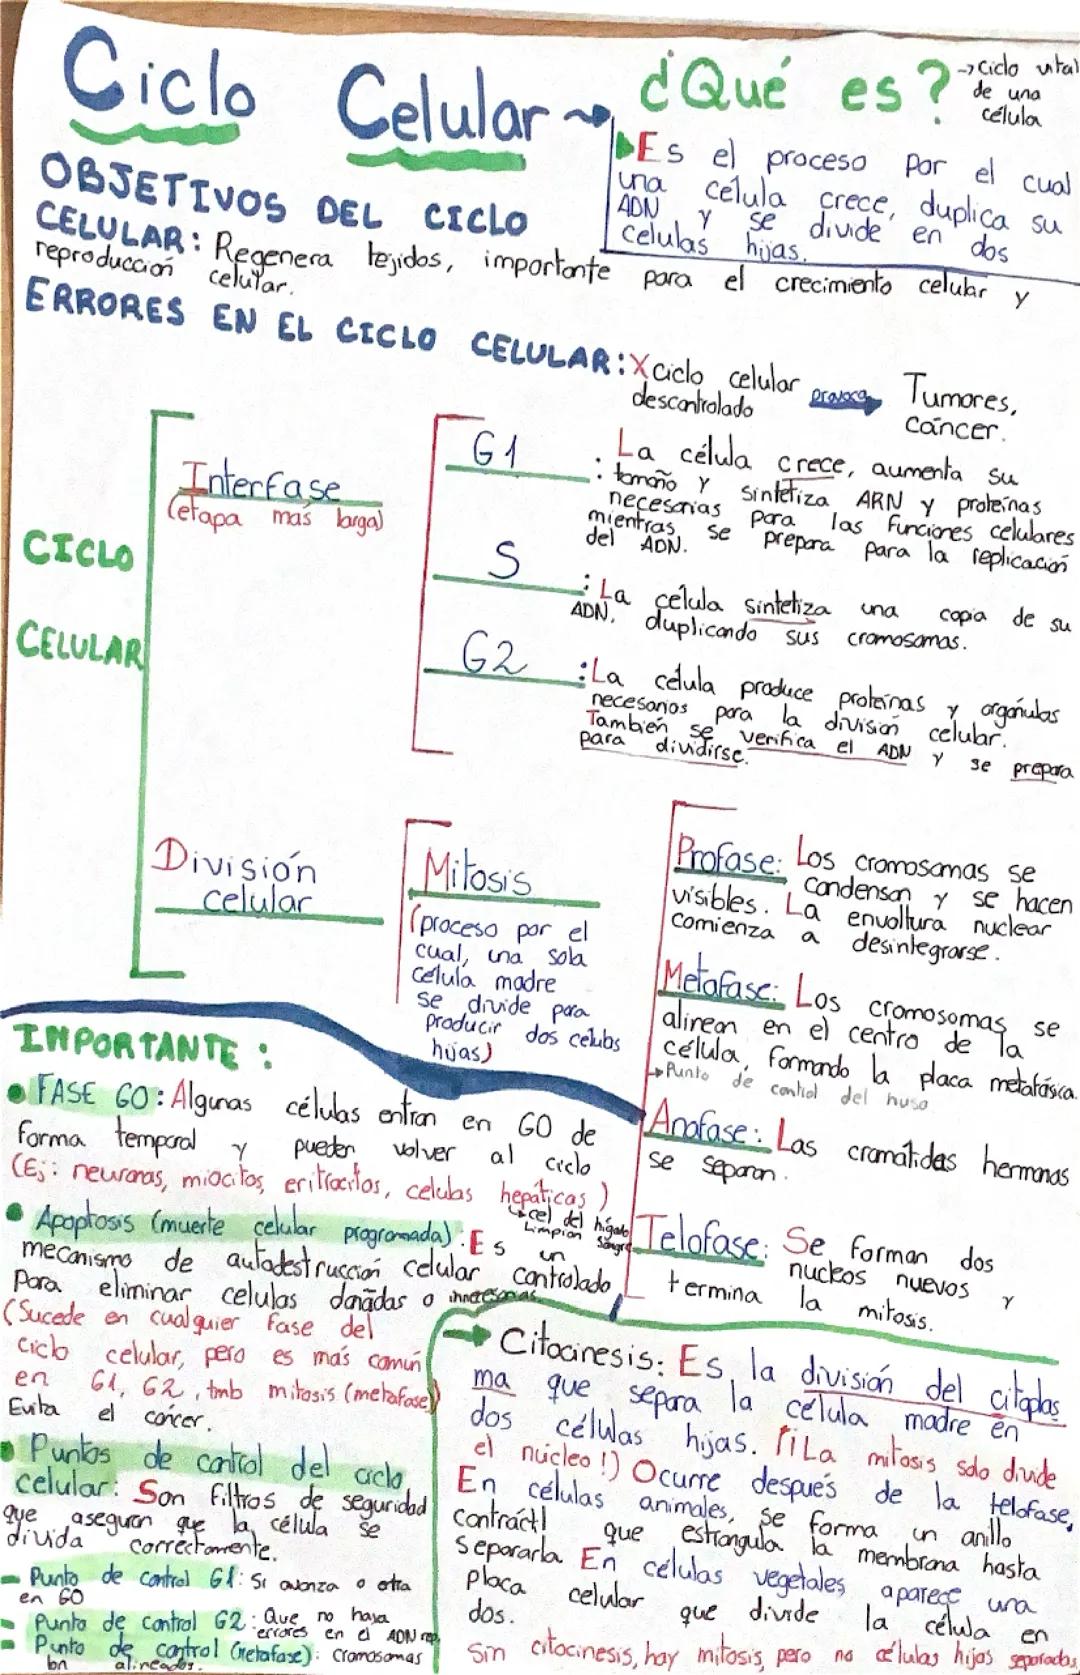 Ciclo Celular → ¿Qué es? → Ciclo vital
de una
célula
Es el proceso por el cual
una célula crece, duplica su
ADN y se divide en dos
celulas hijas.
OBJETIVOS DEL CICLO
CELULAR: Regenera tejidos, importante para el crecimiento celular y
reproducción celular.
ERRORES EN EL CICLO CELULAR: X ciclo celular provoca Tumores,
descontrolado cáncer.
CICLO
CELULAR
Interfase
(etapa más larga)
G1 : La célula crece, aumenta su
tamaño y sintetiza ARN y proteínas
necesarias para las funciones celulares
mientras se prepara para la replicación
del ADN.
S : La célula sintetiza una copia de su
ADN, duplicando sus cromosomas.
G2 : La celula produce proteínas y orgánulos
necesarios para la división celular.
También se verifica el ADN y se prepara
para dividirse.
División
celular
Mitosis
(proceso por el
cual, una sola
célula madre
se divide para
producir dos celulas
hijas)
Profase: Los cromosomas se
condensan y se hacen
visibles. La envoltura nuclear
comienza a desintegrarse.
Metafase: Los cromosomas se
alinean en el centro de la
célula, formando la placa metafásica.
→ Punto de control del huso
Anafase: Las cromátidas hermanas
se separan.
Telofase: Se forman dos
nucleos nuevos y
termina la mitosis.
IMPORTANTE:
• FASE G0: Algunas células entran en G0 de
forma temporal y pueden volver al ciclo
(Ej: neuronas, miocitos, eritrocitos, celulas hepáticas)
→ cel del hígado
Limpian sangre
• Apoptosis (muerte celular programada): Es un
mecanismo de autodestrucción celular controlado
para eliminar celulas dañadas o innecesarias.
(Sucede en cualquier fase del
ciclo celular, pero es más común
en G1, G2, tmb mitosis (metafase))
Evita el cáncer.
• Puntos de control del ciclo
celular: Son filtros de seguridad
que aseguran que la célula se
divida correctamente.
- Punto de control G1: Si avanza o entra
en G0
- Punto de control G2: Que no haya
errores en el ADN rep
- Punto de control (metafase): cromosomas
bn alineados.
→ Citocinesis: Es la división del citoplas
ma que separa la célula madre en
dos células hijas. (¡La mitosis solo divide
el núcleo!) Ocurre después de la telofase,
En células animales, se forma un anillo
contráctl que estrangula la membrana hasta
separarla En células vegetales aparece una
placa celular que divide la célula en
dos.
Sin citocinesis, hay mitosis, pero no células hijas separadas